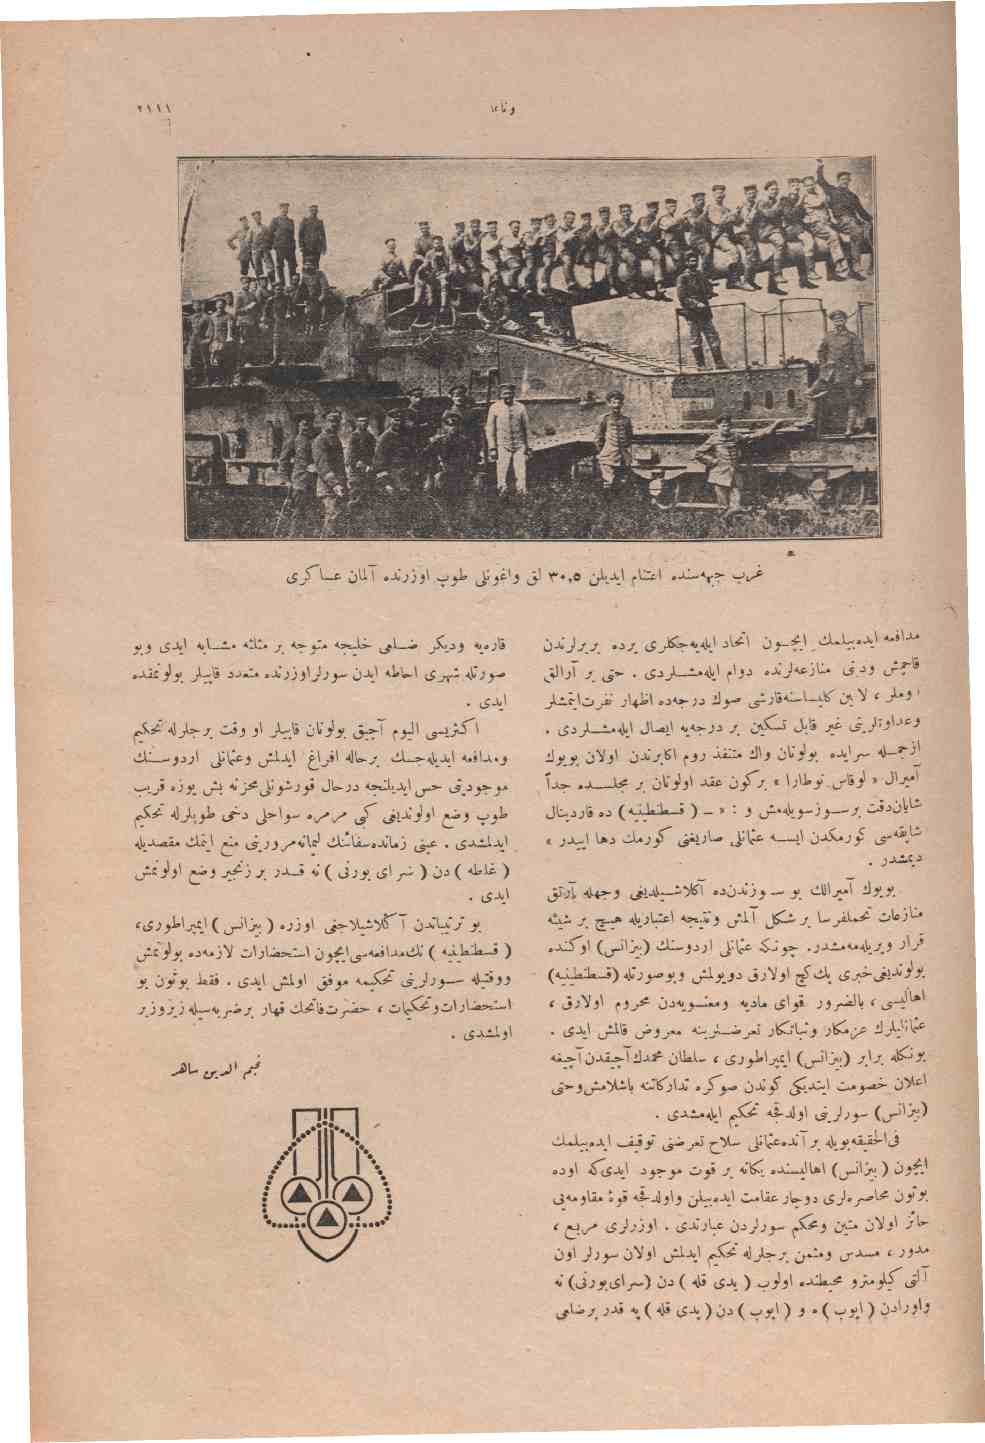 ٢١١١
وقايع
غرب جبهه‌سنده اغتنام ايديلن ٣٠,٥ لق واغونلى طوپ اوزرنده آلمان عساكرى
مدافعه ايده‌بيلمك ايچــون اتحاد ايله‌يه‌جكلرى يرده بربرلرندن
قاچمش ودينى منازعه‌لرنده دوام ايله‌مشــلردى . حتى بر آرالق
روملر ، لاتين كليسـاسنه‌قارشى صوك درجه‌ده اظهار نفرت‌ايتمشلر
وعداوتلرينى غير قابل تسكين بر درجه‌يه ايصال ايله‌مشــلردى .
ازجمـله سرايده بولونان واك متنفذ روم اكابرندن اولان بويوك
آميرال « لوقاس نوطارا » بركون عقد اولونان بر مجلســده جداً
شايان‌دقت برســوزسويله‌مش و : « ــ ( قسطنطينيه ) ده قاردينال
شاپقه‌سى كورمكدن ايســه عثمانلى صاريغنى كورمك دها اييدر »
ديمشدر .
بويوك آميرالك بو ســوزندن‌ده آكلاشـيلديغى وجهله آرتق
منازعات تحملفرسا بر شكل آلمش ونتيجه اعتباريله هيچ بر شيئه
قرار ويريله‌مه‌مشدر. چونكه عثمانلى اردوسنك (بيزانس) اوكنده
بولونديغى‌خبرى پك‌كچ اولارق دويولمش وبوصورتله (قسطنطينيه)
اهاليسى ، بالضرور قواى ماديه ومعنــويه‌دن محروم اولارق ،
عثمانليلرك عزمكار وثباتكار تعرضــلرينه معروض قالمش ايدى .
بونكله برابر (بيزانس) ايمپراطورى ، سلطان محمدك‌آچيقدن‌آچيغه
اعلان خصومت ايتديكى كوندن صوكره تداركاتنه باشلامش‌وحتى
(بيزانس) سورلرينى اولدقجه تحكيم ايله‌مشدى .
فى‌الحقيقه‌بويله بر آنده‌عثمانلى سلاح تعرضنى توقيف ايده‌بيلمك
ايچون ( بيزانس) اهاليسنده يكانه بر قوت موجود ايدى‌كه اوده
بوتون محاصره‌لرى دوچار عقامت ايده‌بيلن واولدقجه قوۀ مقاومه‌يى
حائز اولان متين ومحكم سورلردن عبارتدى . اوزرلرى مربع ،
مدور ، مسدس ومثمن برجلرله تحكيم ايدلمش اولان سورلر اون
آلتى كيلومترو محيطنده اولوب ( يدى قله ) دن (سراى‌بورنى) نه
واورادن ( ايوب ) ه و ( ايوب ) دن ( يدى قله ) يه قدر برضلعى
قاره‌يه وديكر ضــلعى خليجه متوجه بر مثلثه مشــابه ايدى وبو
صورتله شهرى احاطه ايدن سورلراوزرنده متعدد قاپيلر بولونمقده
ايدى .
اكثريسى اليوم آچيق بولونان قاپيلر او وقت برجلرله تحكيم
ومدافعه ايديله‌جـك برحاله افراغ ايدلمش وعثمانلى اردوســنك
موجوديتى حس ايديلنجه درحال قورشونلى‌مخزنه بش يوزه قريب
طوپ وضع اولونديغى كبى مرمره سواحلى دخى طوپلرله تحكيم
ايدلمشدى . عينى زمانده‌سفائنك ليمانه‌مرورينى منع ايتمك مقصديله
( غلطه ) دن ( سراى بورنى ) نه قــدر بر زنجير وضع اولونمش
ايدى .
بو ترتيباتدن آكلاشيلاجغى اوزره ( بيزانس ) ايمپراطورى،
( قسطنطينيه ) نك‌مدافعه‌سى‌ايچون استحضارات لازمه‌ده بولونمش
ووقتيله ســورلرينى تحكيمه موفق اولمش ايدى . فقط بوتون بو
استحضارات‌وتحكيمات ، حضرت‌فاتحك قهار برضربه‌سيله‌زيروزبر
اولمشدى .
نجم الدين ساهر